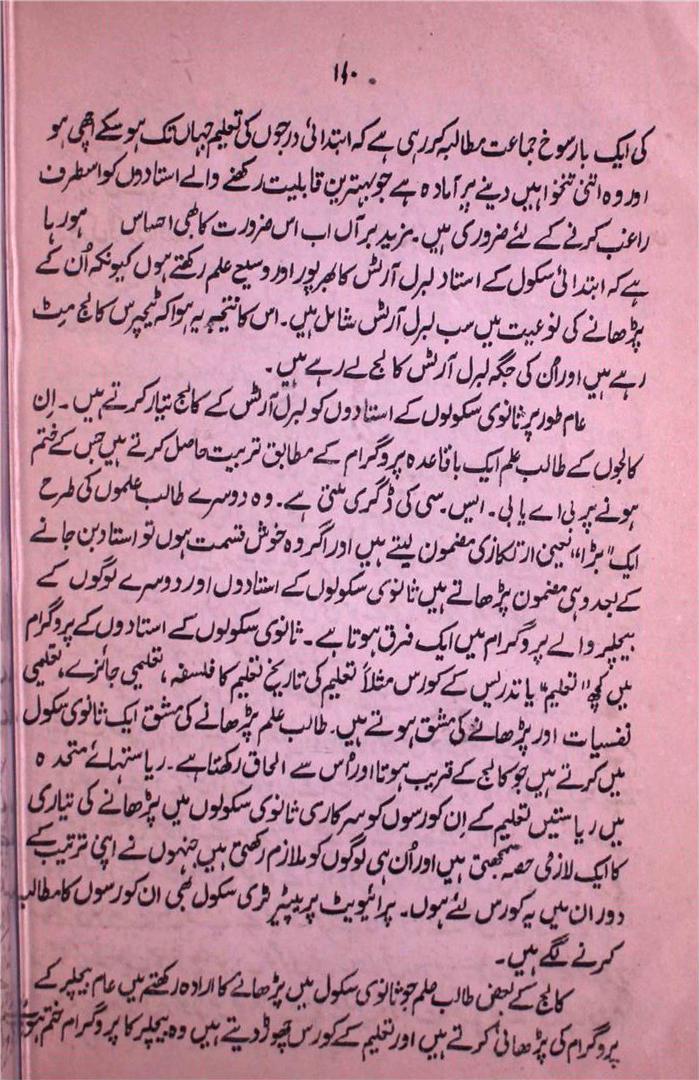 ۱۶۰
کی ایک بارسوخ جماعت مطالبہ کر رہی ہے کہ ابتدائی درجوں کی تعلیم جہاں تک ہو سکے اچھی ہو
اور وہ اتنی تنخواہیں دینے پر آمادہ ہے جو بہترین قابلیت رکھنے والے استادوں کو اسطرف
راغب کرنے کے لئے ضروری ہیں۔ مزید برآں اب اس ضرورت کا بھی احساس ہو رہا
ہے کہ ابتدائی سکول کے استاد لبرل آرٹس کا بھرپور اور وسیع علم رکھتے ہوں کیونکہ اُن کے
پڑھانے کی نوعیت میں سب لبرل آرٹس شامل ہیں۔ اس کا نتیجہ یہ ہوا کہ ٹیچرس کالج مِٹ
رہے ہیں اور اُن کی جگہ لبرل آرٹس کالج لے رہے ہیں۔
عام طور پر ثانوی سکولوں کے استادوں کو لبرل آرٹس کے کالج تیار کرتے ہیں۔ اِن
کالجوں کے طالب علم ایک باقاعدہ پروگرام کے مطابق تربیت حاصل کرتے ہیں جس کے ختم
ہونے پر بی اے یا بی۔ ایس۔ سی کی ڈگری ملتی ہے۔ وہ دوسرے طالب علموں کی طرح
ایک "بڑا" یعنی ارتکازی مضمون لیتے ہیں اور اگر وہ خوش قسمت ہوں تو استاد بن جانے
کے بعد وہی مضمون پڑھاتے ہیں ثانوی سکولوں کے استادوں اور دوسرے لوگوں کے
بیچلر والے پروگرام میں ایک فرق ہوتا ہے۔ ثانوی سکولوں کے استادوں کے پروگرام
میں کچھ "تعلیم" یا تدریس کے کورس مثلاً تعلیم کی تاریخ تعلیم کا فلسفہ، تعلیمی جائزے، تعلیمی
نفسیات اور پڑھانے کی مشق ہوتے ہیں۔ طالب علم پڑھانے کی مشق ایک ثانوی سکول
میں کرتے ہیں جو کالج کے قریب ہوتا اور اُس سے الحاق رکھتا ہے۔ ریاستہائے متحدہ
میں ریاستیں تعلیم کے اِن کورسوں کو سرکاری ثانوی سکولوں میں پڑھانے کی تیاری
کا ایک لازمی حصہ سمجھتی ہیں اور اُن ہی لوگوں کو ملازم رکھتی ہیں جنہوں نے اپنی تربیت کے
دوران میں یہ کورس لئے ہوں۔ پرائیویٹ پریپیٹریٹری سکول بھی ان کورسوں کا مطالبہ
کرنے لگے ہیں۔
کالج کے بعض طالب علم جو ثانوی سکول میں پڑھانے کا ارادہ رکھتے ہیں عام بیچلر کے
پروگرام کی پڑھائی کرتے ہیں اور تعلیم کے کورس چھوڑ دیتے ہیں وہ بیچلر کا پروگرام ختم